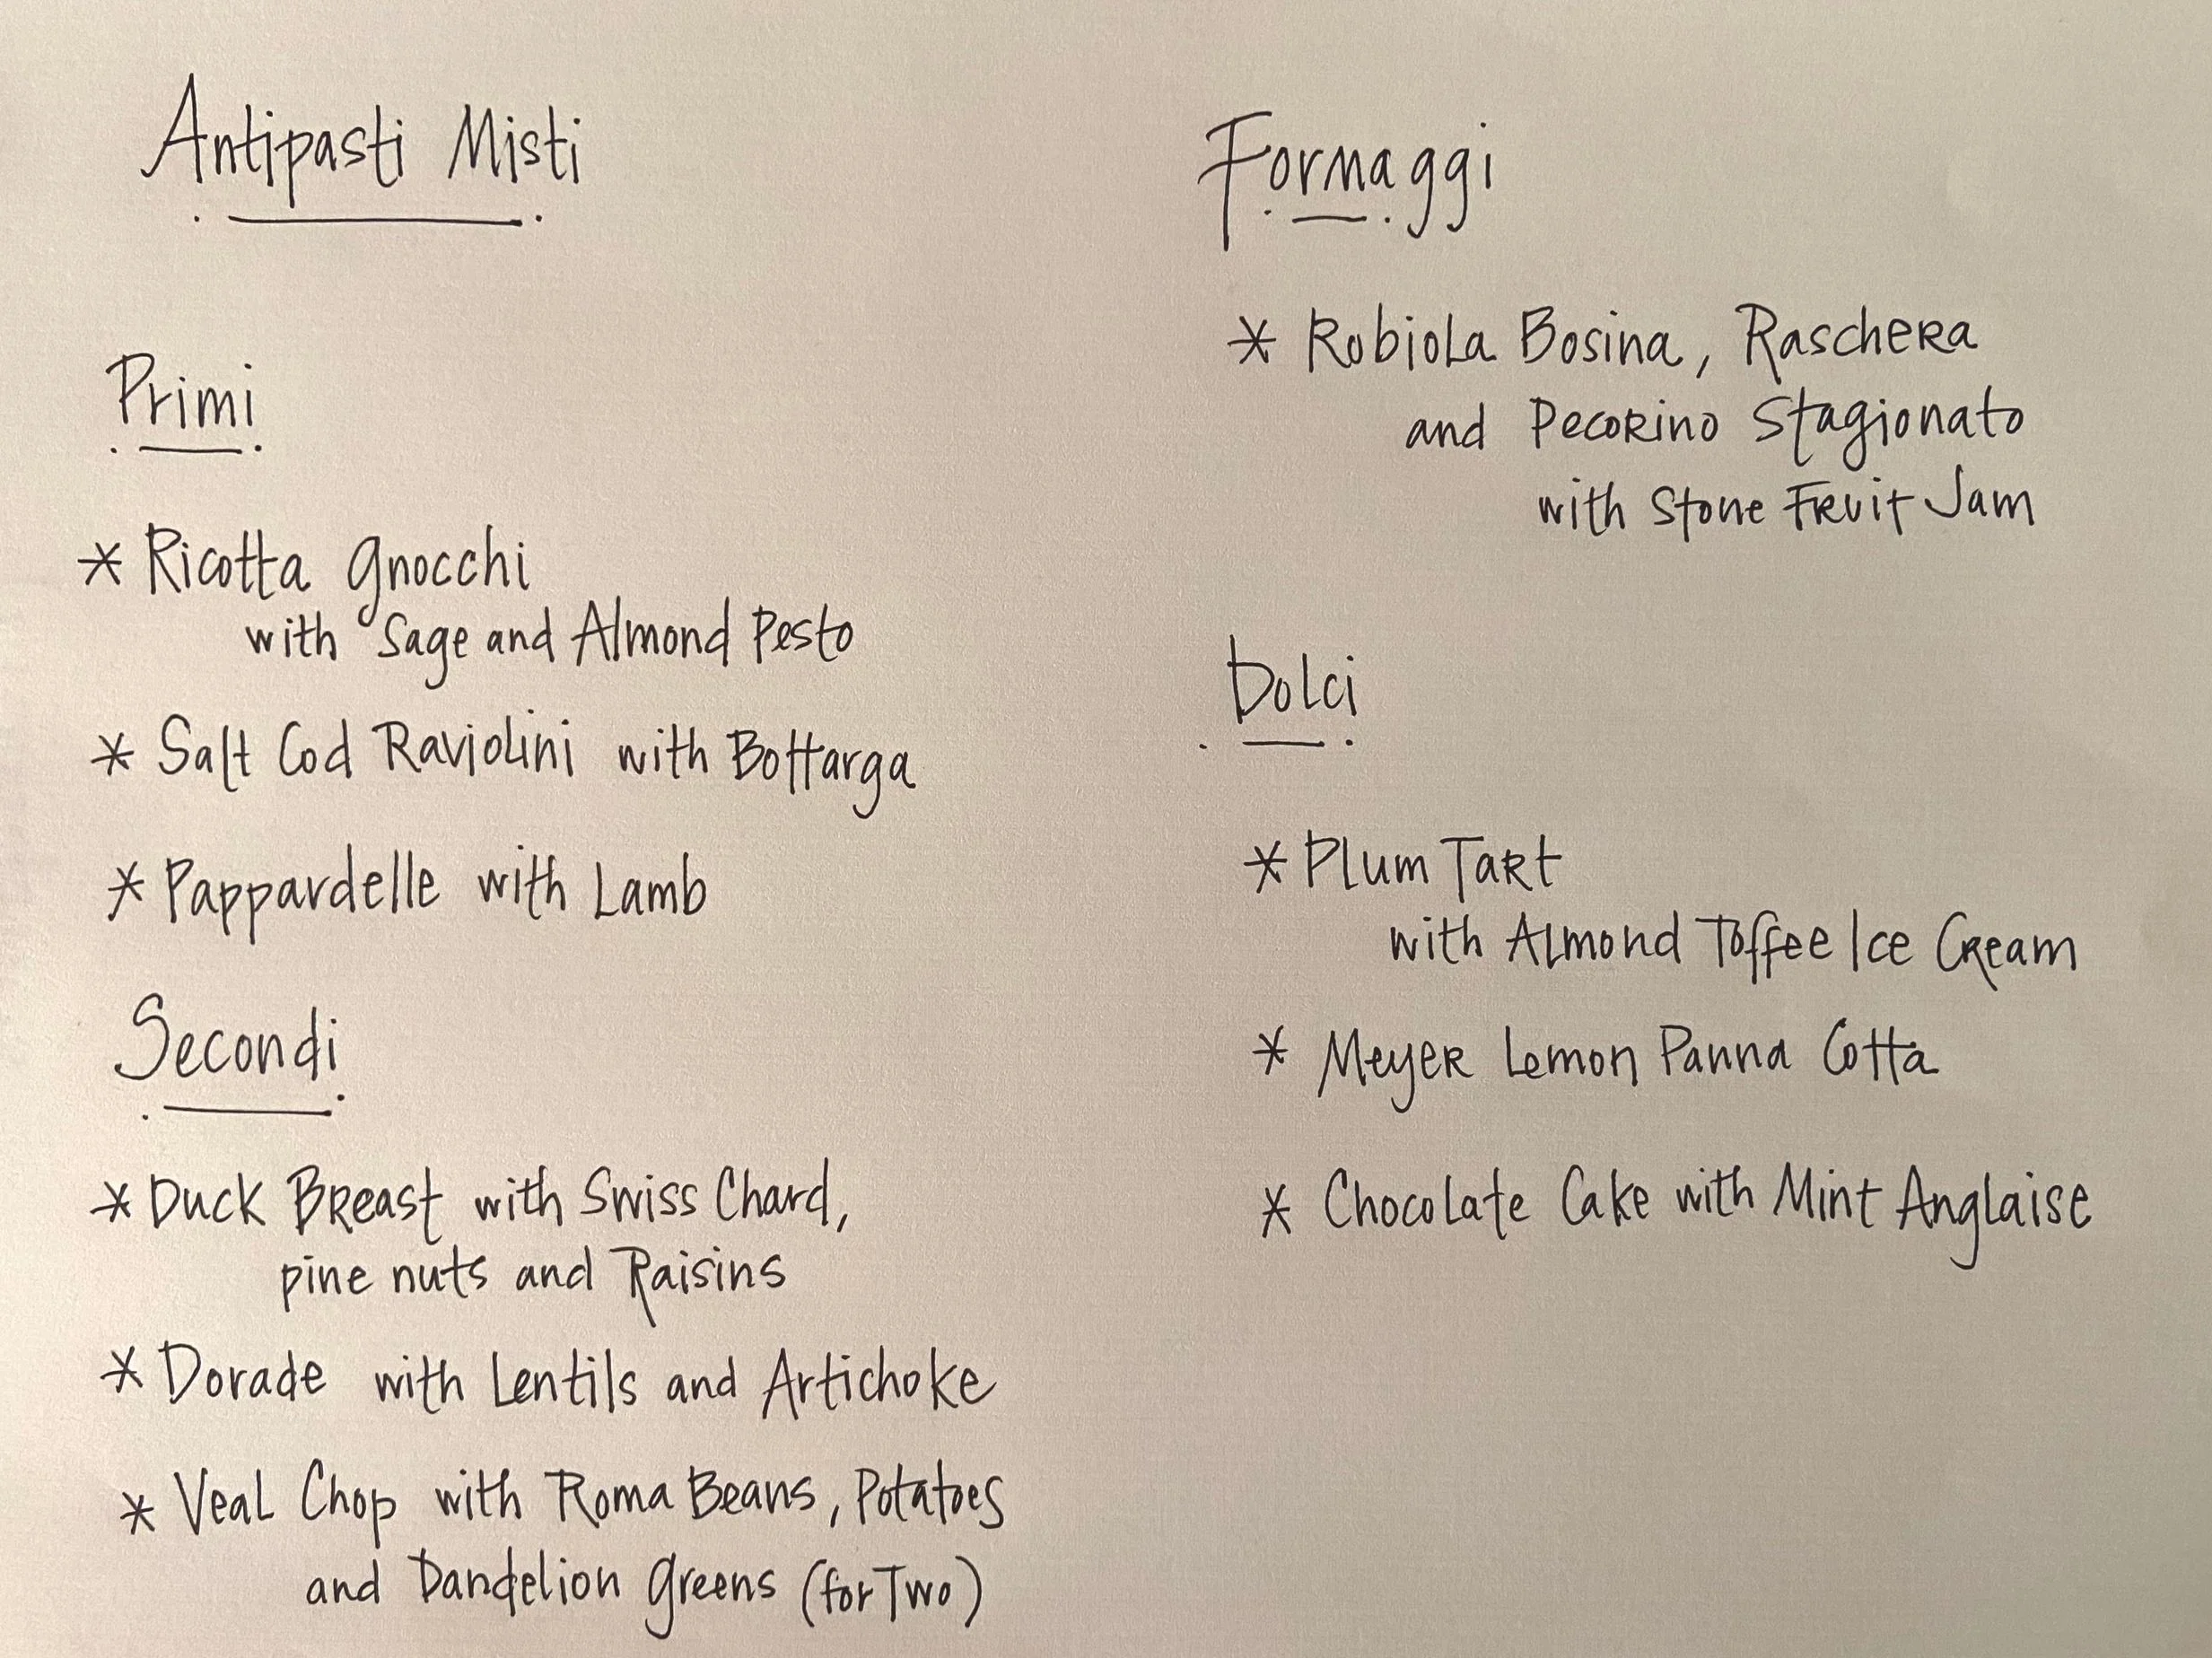 Antipasti Misti
Primi
* Ricotta Gnocchi
with Sage and Almond Pesto
* Salt Cod Raviolini with Bottarga
* Pappardelle with Lamb
Secondi
* Duck Breast with Swiss Chard,
pine nuts and Raisins
* Dorade with Lentils and Artichoke
* Veal Chop with Roma Beans, Potatoes
and Dandelion Greens (for Two)
Formaggi
* Robiola Bosina, Raschera
and Pecorino Stagionato
with Stone Fruit Jam
Dolci
* Plum Tart
with Almond Toffee Ice Cream
* Meyer Lemon Panna Cotta
* Chocolate Cake with Mint Anglaise